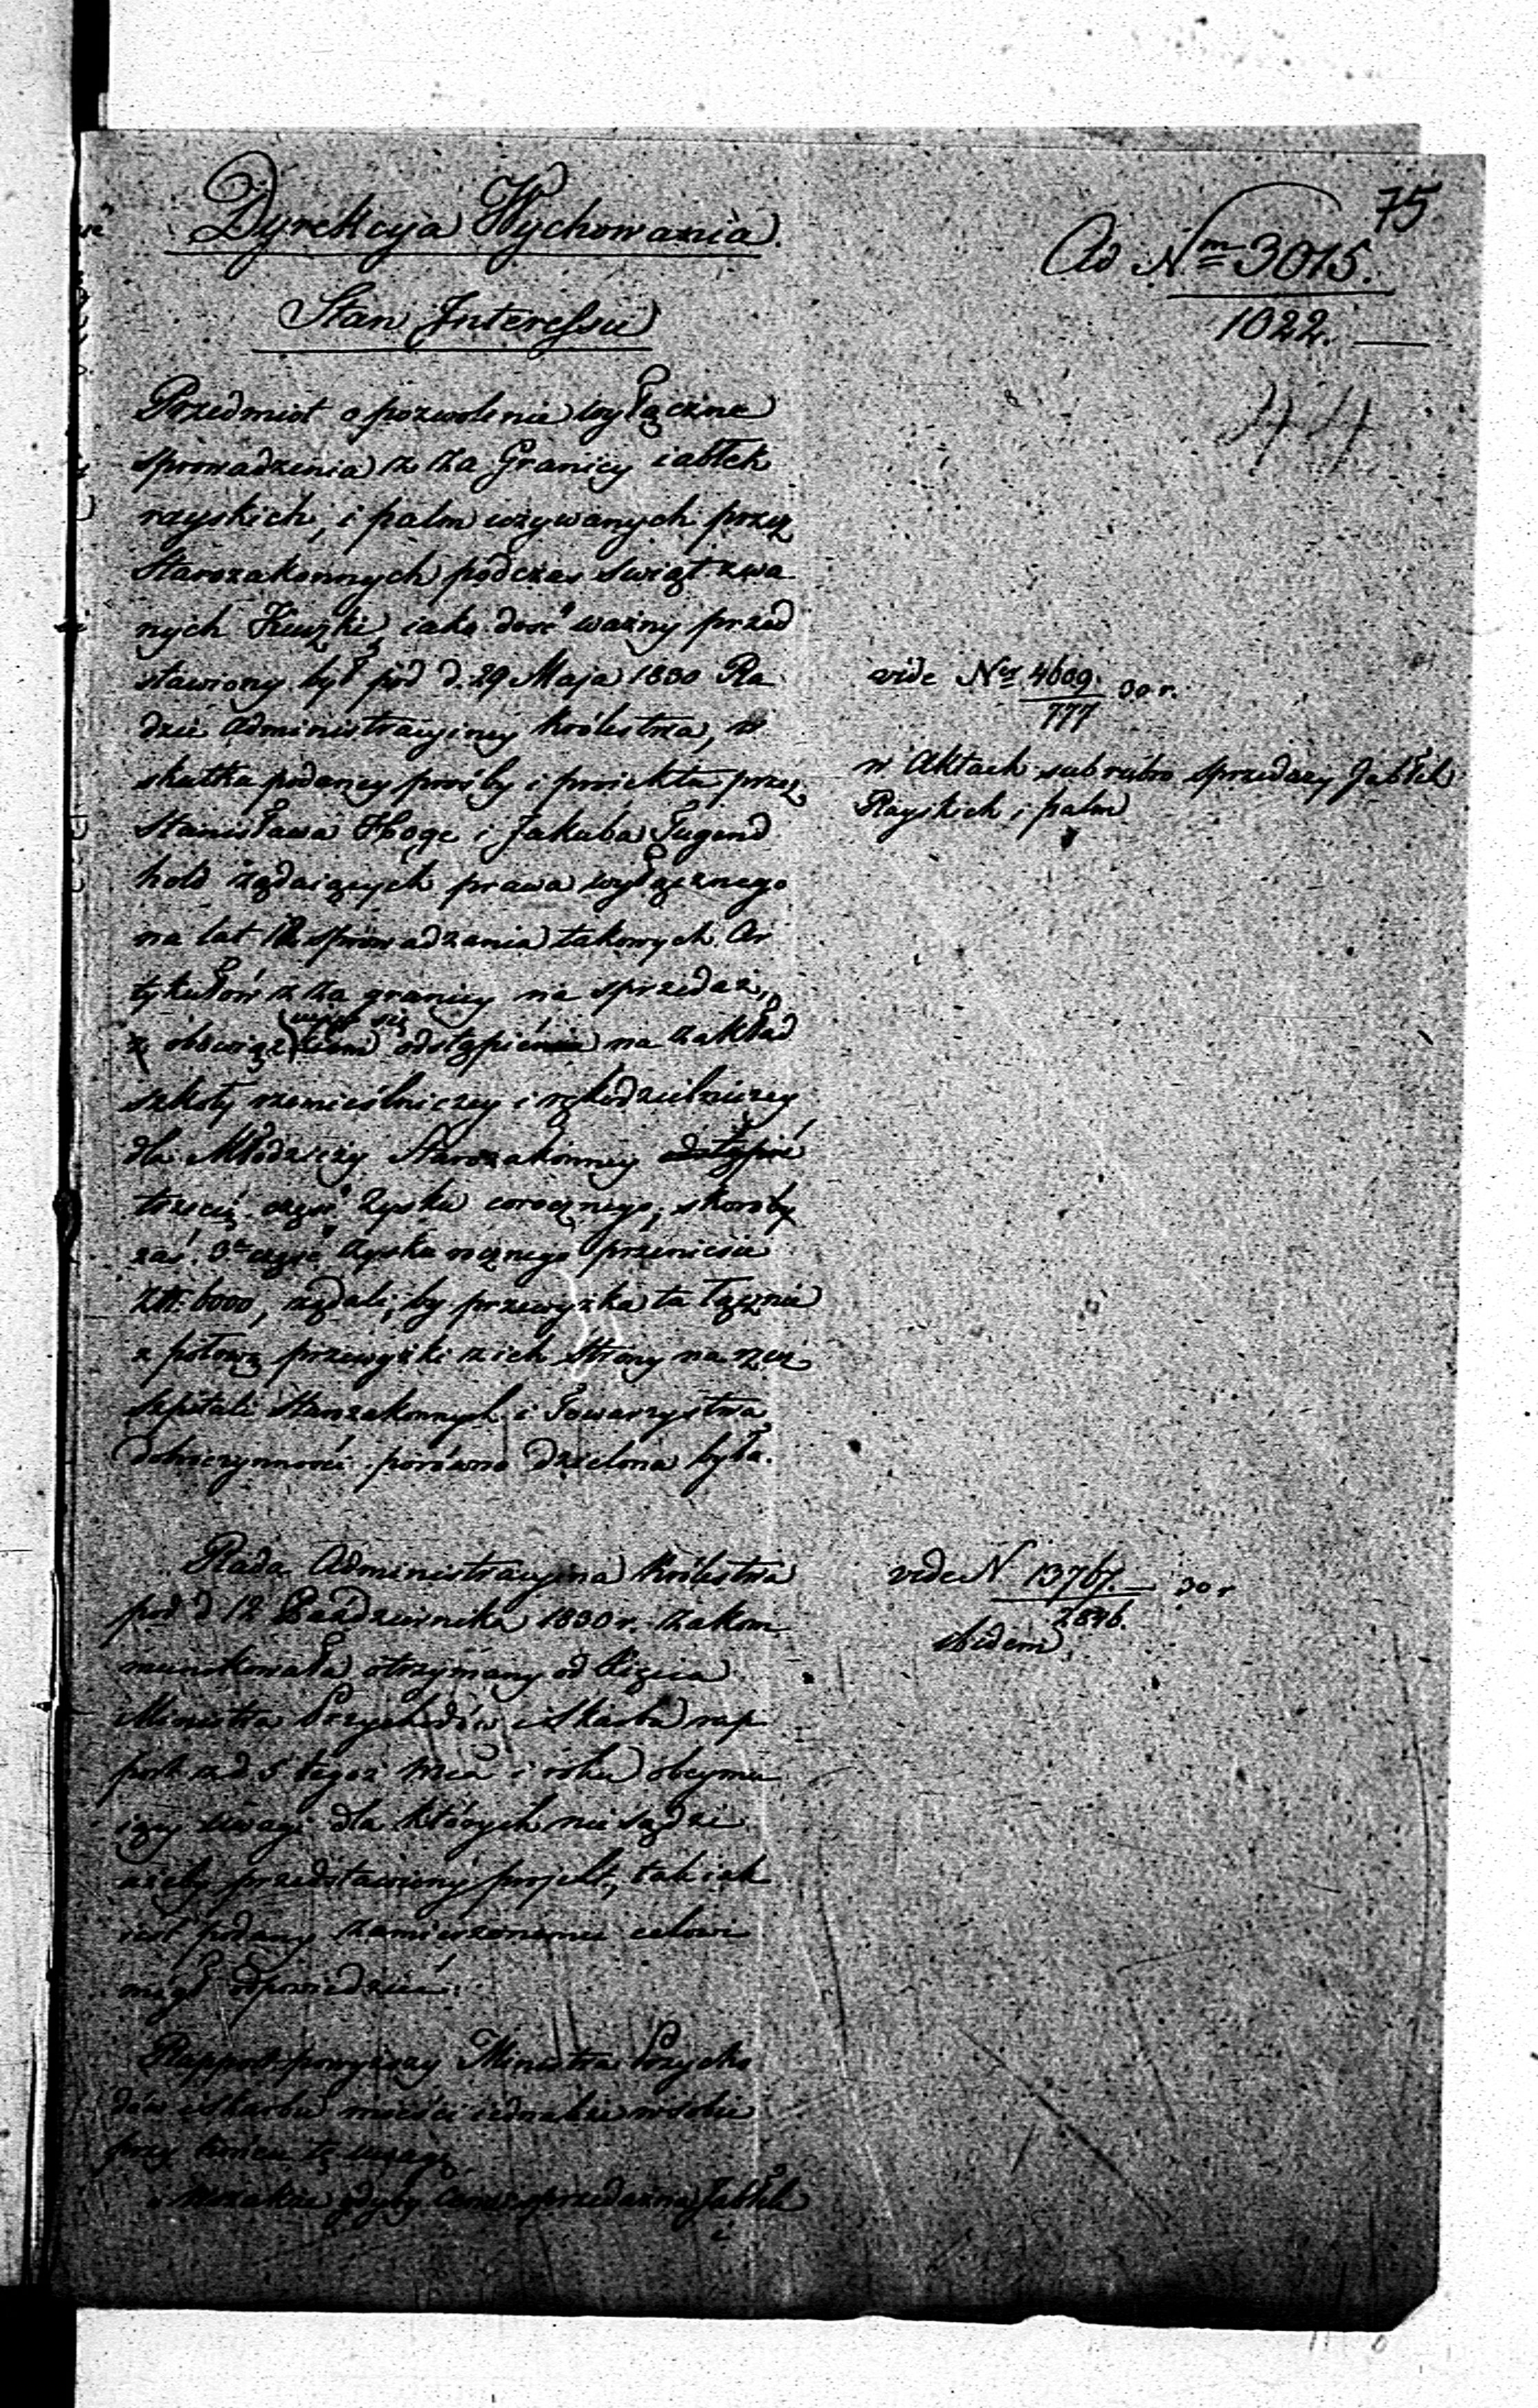 75
Dyrekcyja Wychowania.
Ad Nm 3015.
1022.
Stan Interessu
44
Przedmiot o pozwolenie wyłączne
sprowadzenia z za Granicy iabłek
rayskich, i palm używanych przez
Starozakonnych podczas swiąt zwa
nych Kuczki, iako dość ważny przed
stawiony był pod d. 29 Maja 1830 Ra
dzie Administracyiney Królestwa, w
skutku podaney prośby i proiektu przez
Stanisława Hoge i Jakuba Tugend
hold żądaiących prawa wyłącznego
na lat 12 sprowadzania takowych Ar
tykułów z za granicy na sprzedaż,
z obowiąz odstąpienia na zakład
szkoły rzemieślniczey i rękodzielniczey
dla Młodzieży Starozakonney odstąpić
trzecią część zysku corocznego, skoroby
zaś 3cia część zysku rocznego przeniesie
złt. 6000, żądali, by przewyżka ta łącznie
z połową przewyżki z ich Strony na rzecz
szpitali Starozakonnych i Towarzystwa
dobroczynności porówno dzielona była.
vide Nr 4609. 30 r.
777
w Aktach sub rubro sprzedaży Jabłek
Rayskich i palm
Rada Administracyina Królestwa
pod d 12 Października 1830 r. zakom
munikowała otrzymany od Xięcia
Ministra Przychodów i Skarbu rap
port z d. 5 tegoż Mca i roku obeymu
iący uwagi dla których nie sądzi
ażeby przedstawiony projekt, tak iak
iest podany zamierzonemu celowi
mógł odpowiedzieć.
vide N 13767. 30 r
2846.
ibidem
Rapport powyższy Ministra Przycho
dów i Skarbu mieści iednakże w sobie
przy końcu tę uwagę
gdyby cenę sprzedażną Jabłek
i